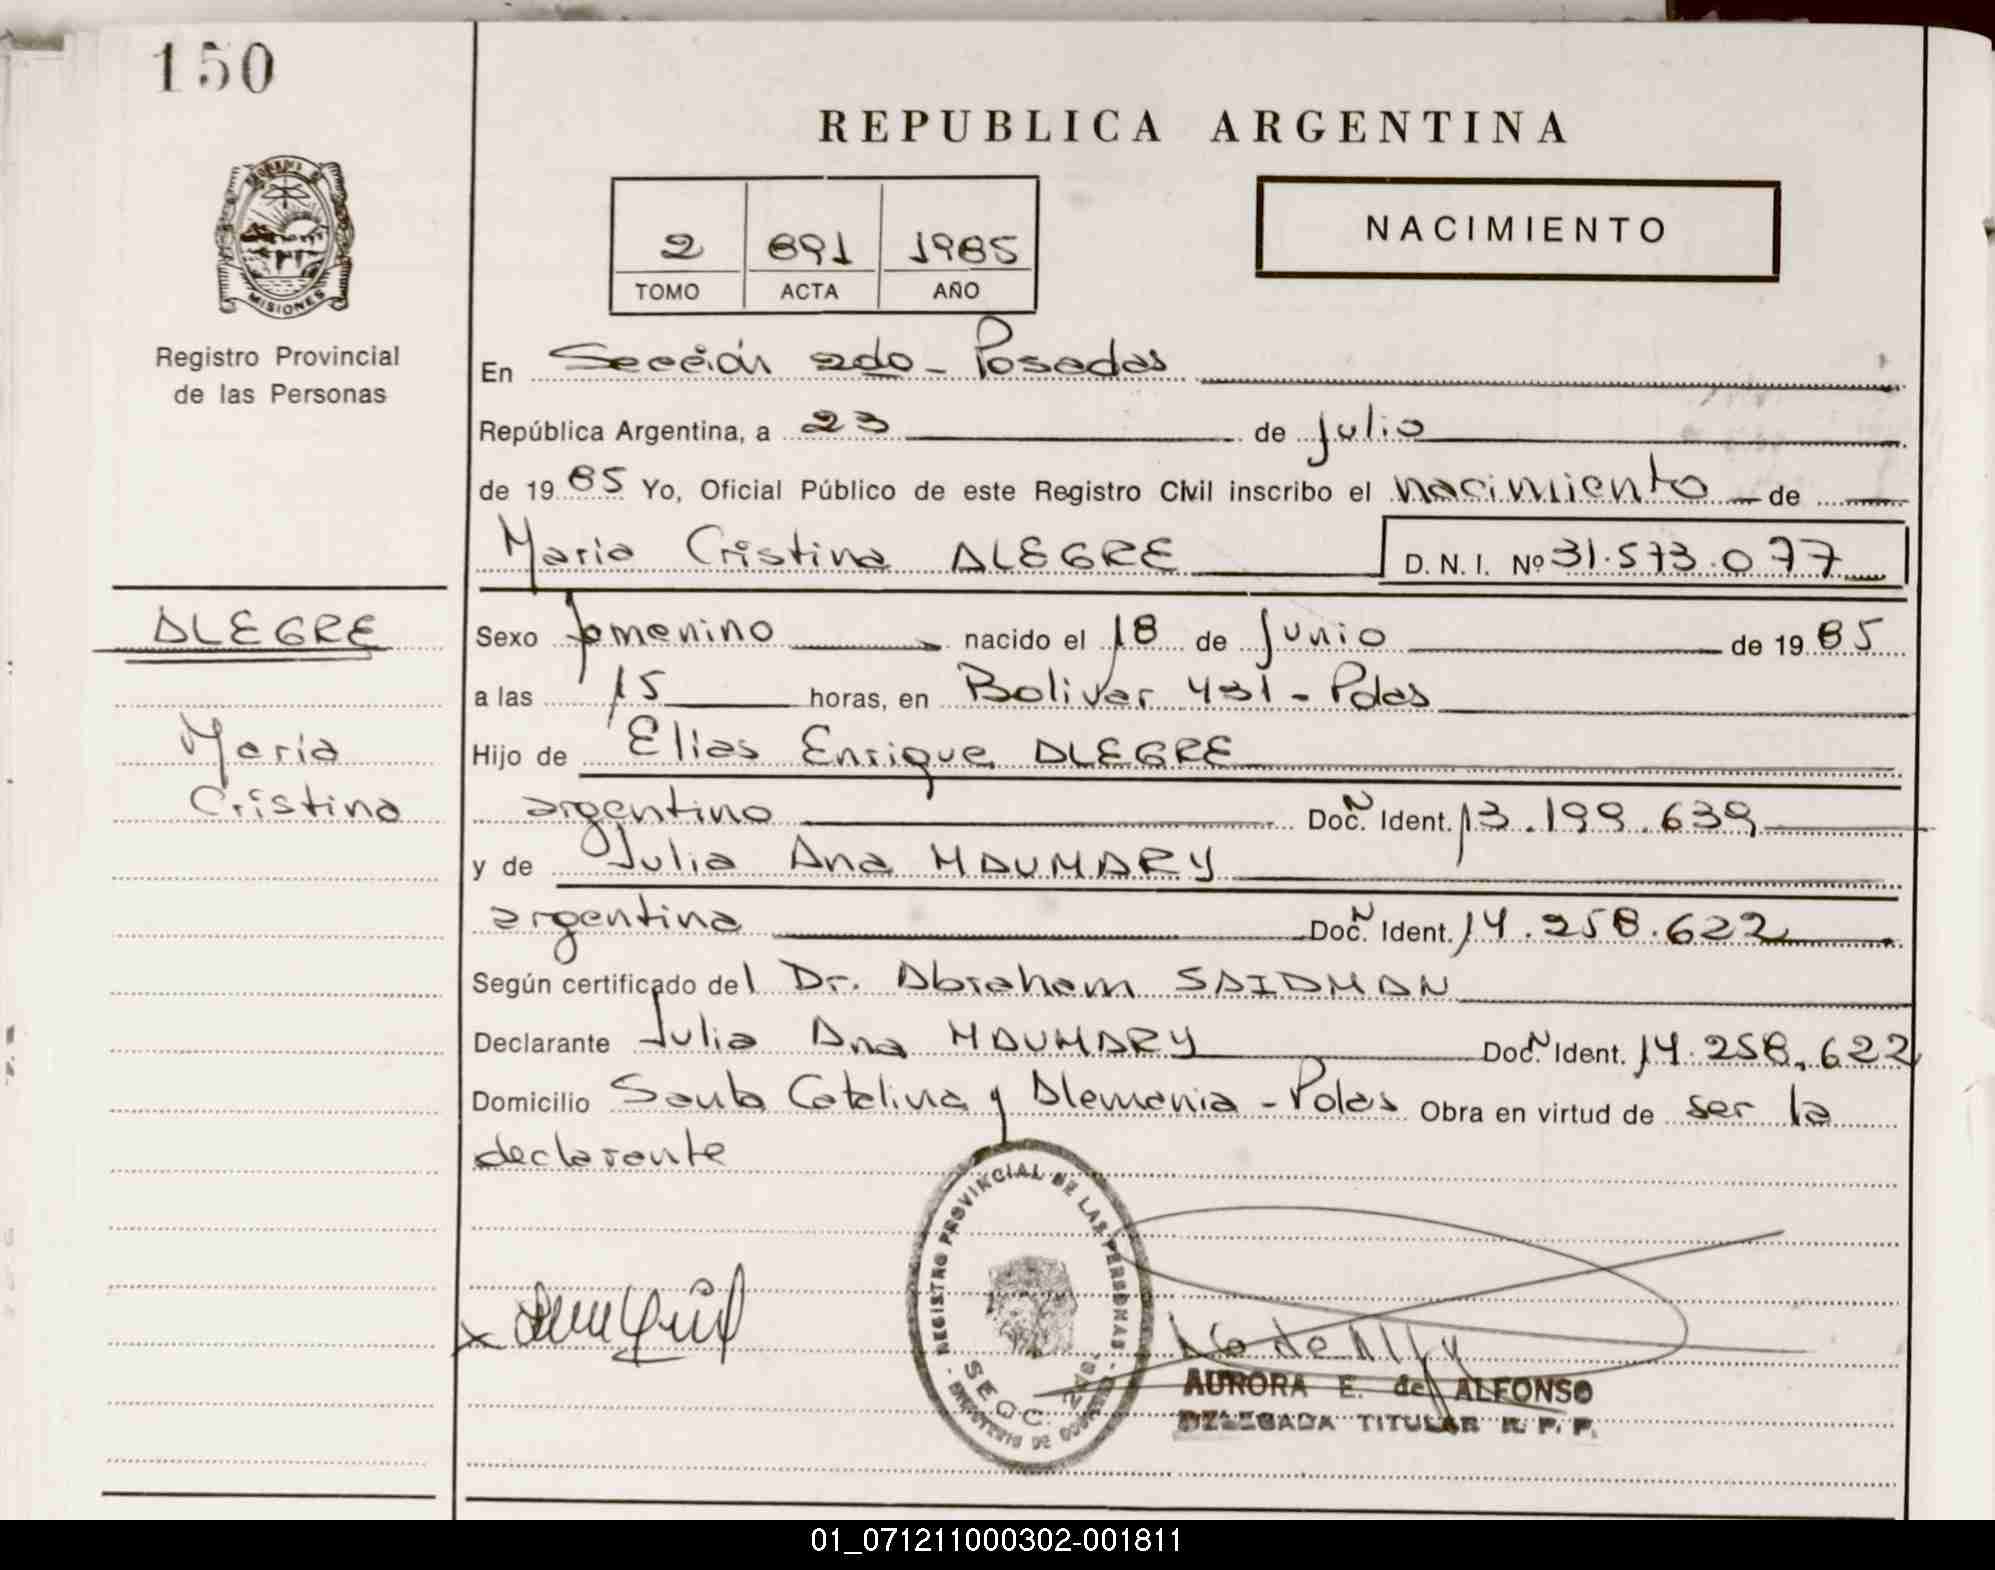 150
REPUBLICA ARGENTINA
NACIMIENTO
2 891 1985
TOMO ACTA AÑO
MISIONES
Registro Provincial
de las Personas
En Sección 2do - Posadas
República Argentina, a 23 de julio
de 1985 Yo, Oficial Público de este Registro Civil inscribo el nacimiento de
Maria Cristina ALEGRE D. N. I. Nº 31.573.077
ALEGRE
Maria
Cristina
Sexo femenino nacido el 18 de Junio de 1985
a las 15 horas, en Bolivar 431 - Pdas
Hijo de Elias Enrique ALEGRE
argentino Doc. N Ident. 13.199.639
y de Julia Ana MAUMARY
argentina Doc. N Ident. 14.258.622
Según certificado del Dr. Abraham SAIDMAN
Declarante Julia Ana MAUMARY Doc. N Ident. 14.258.622
Domicilio Santa Catalina y Alemania - Pdas Obra en virtud de ser la
declarante
REGISTRO PROVINCIAL DE LAS PERSONAS
SECC. 2da.
MINISTERIO DE GOBIERNO
AURORA E. de ALFONSO
DELEGADA TITULAR R. P. P.
01_071211000302-001811